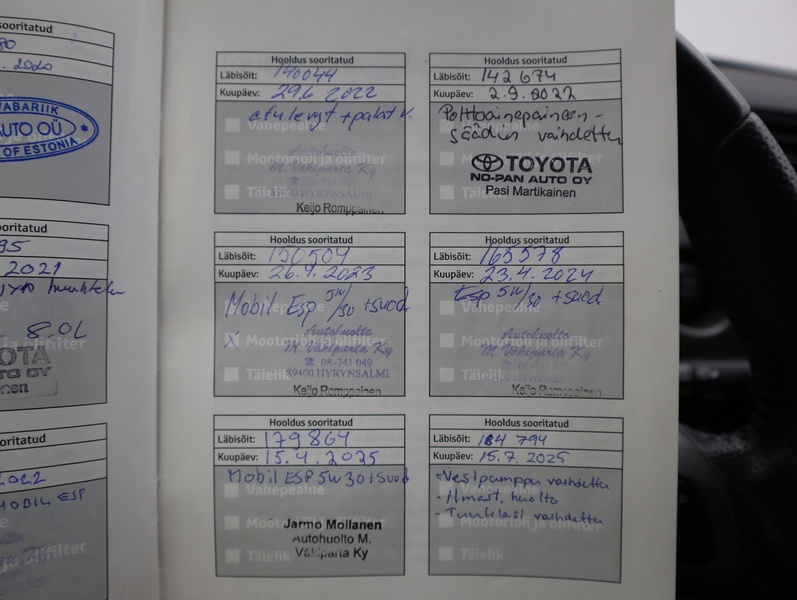 sooritatud
2020
VABARIIK
AUTO OÜ
OF ESTONIA
sooritatud
95
2021
8.0L
OTA
sooritatud
2022
MOBIL ESP
Hooldus sooritatud
Läbisõit: 140044
Kuupäev: 29.6 2022
+ palat
Vahepealne
Mootoriõli ja õlifilter
Täielik
Autohuolto
M. Väkiparta Ky
08-741 049
89400 HYRYNSALMI
Keijo Romppainen
Hooldus sooritatud
Läbisõit: 142674
Kuupäev: 2.9.2022
Polttoainepaineen-
säädin vaihdettu
TOYOTA
NO-PAN AUTO OY
Pasi Martikainen
Hooldus sooritatud
Läbisõit: 150504
Kuupäev: 26.4.2023
Mobil Esp 5W/30 + suod
X Mootoriõli ja õlifilter
Täielik
Autohuolto
M. Väkiparta Ky
08-741 049
89400 HYRYNSALMI
Keijo Romppainen
Hooldus sooritatud
Läbisõit: 165578
Kuupäev: 23.4.2024
Esp 5W/30 + suod
Mootoriõli ja õlifilter
Täielik
Autohuolto
M. Väkiparta Ky
Keijo Romppainen
Hooldus sooritatud
Läbisõit: 179864
Kuupäev: 15.4.2025
Mobil ESP 5W30 + suod
Vahepealne
Täielik
Jarmo Moilanen
Autohuolto M.
Väkiparta Ky
Hooldus sooritatud
Läbisõit: 184 794
Kuupäev: 15.7.2025
- Vesipumppu vaihdettu
- Ilmast. huolto
- Tuulilasi vaihdettu
Vahepealne
Mootoriõli ja õlifilter
Täielik